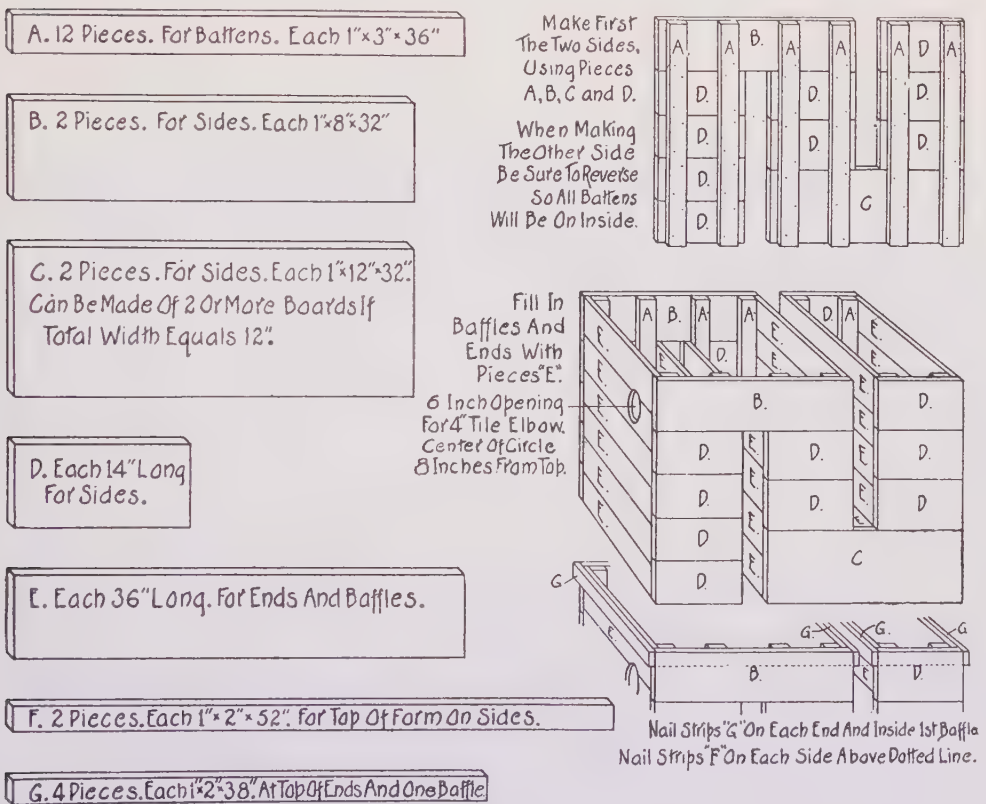 A. 12 Pieces. For Battens. Each 1"×3"×36"
B. 2 Pieces. For Sides. Each 1"×8"×32"
C. 2 Pieces. For Sides. Each 1"×12"×32".
Can Be Made Of 2 Or More Boards If
Total Width Equals 12".
D. Each 14" Long
For Sides.
E. Each 36" Long. For Ends And Baffles.
F. 2 Pieces. Each 1"×2"×52". For Top Of Form On Sides.
G. 4 Pieces. Each 1"×2"×38". At Top Of Ends And One Baffle
Make First
The Two Sides,
Using Pieces
A, B, C and D.
When Making
The Other Side
Be Sure To Reverse
So All Battens
Will Be On Inside.
A A B. A A A D. A
D. D. D.
D. D. D.
D.
D. C
Fill In
Baffles And
Ends With
Pieces "E".
6 Inch Opening
For 4" Tile Elbow.
Center Of Circle
8 Inches From Top.
E. A B. A A D. A E.
E. E. D. E.
E. B. E. D.
E. E. D. E. D. E. D.
E. D. E. D. E. D
E. D. E. E
D. E. C
G E. G. G. G
B. E D.
Nail Strips "G" On Each End And Inside 1st Baffle
Nail Strips "F" On Each Side Above Dotted Line.